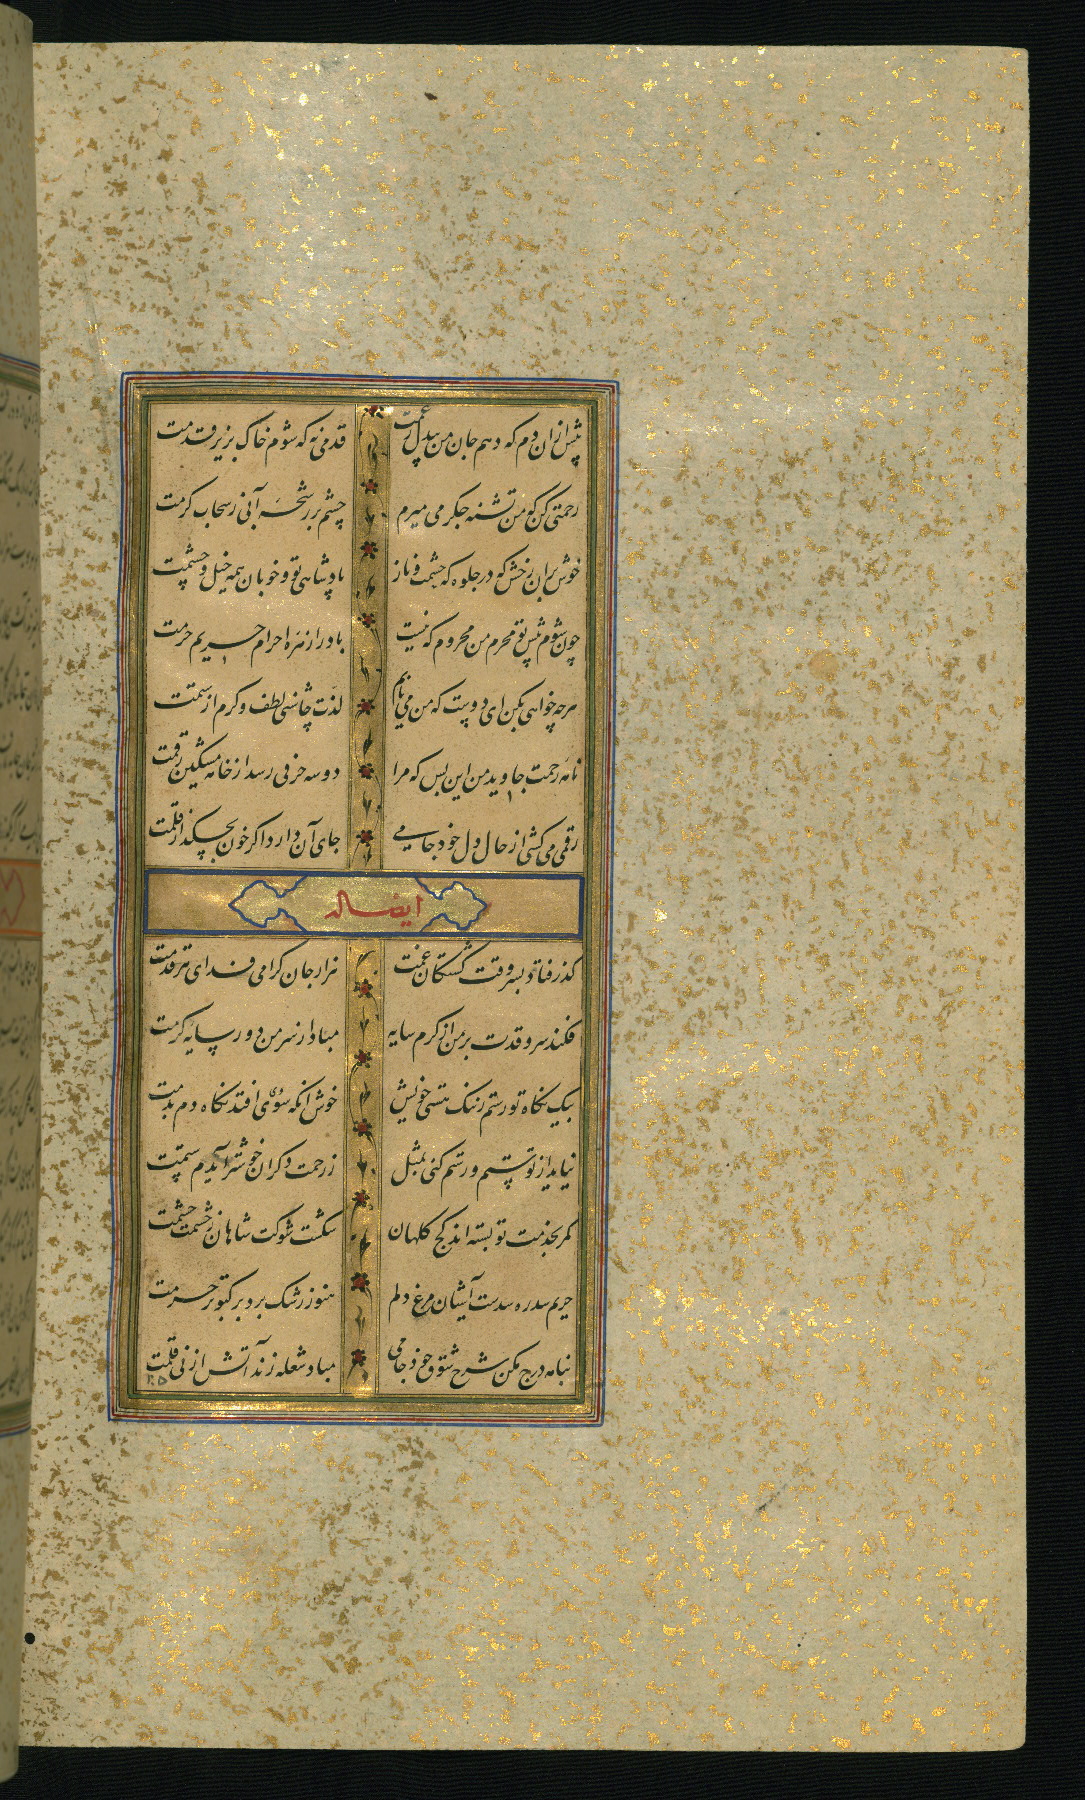 پیش ازان دم که دهم جان من بیدل ز غمت
قدمی نه که شوم خاک بزیر قدمت
رحمتی کن که من تشنه جکر می میرم
چشم بر رشحهٔ آبی ز سحاب کرمت
خوش بران رخش که در جلوه که حشمت و ناز
پادشاهی تو و خوبان همه خیل و حشمت
چون شوم پیش تو محرم من محروم که نیست
باد را زهرهٔ احرام حریم حرمت
هرچه خواهی بکن ای دوست که من می یابم
لذت چاشنی لطف و کرم از ستمت
نامهٔ رحمت جاوید من این بس که مرا
دو سه حرفی رسد از خامه مشکین رقمت
رقمی می کشی از حال دل خود جامی
جای آن دارد اکر خون بچکد از قلمت
ایضا له
کذر فتاد بسروقت کشتکان غمت
هزار جان کرامی فدای هر قدمت
فکند سرو قدت بر من از کرم سایه
مباد از سر من دور سایهٔ کرمت
بیک نکاه تو رستم ز ننک هستی خویش
خوش انکه سوی افتد نکاه دم بدمت
نیاید از تو ستم ور ستم کنی بمثل
ز رحمت دکران خوشتر آیدم ستمت
کمر بخدمت تو بسته اند کج کلهان
شکست شوکت شاهان ز حشمت حشمت
حریم سدره شدست آشیان مرغ دلم
هنوز رشک برد بر کبوتر حرمت
بنامه درج مکن شرح شوق خود جامی
مباد شعله زند آتش از نی قلمت